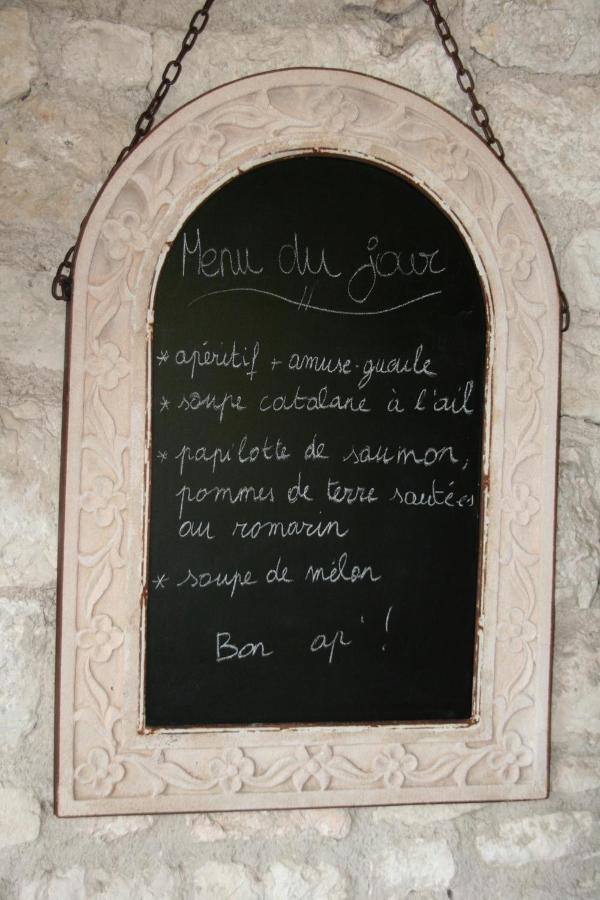 Menu du jour
* apéritif + amuse-gueule
* soupe catalane à l'ail
* papilotte de saumon,
pommes de terre sautées
au romarin
* soupe de mélon
Bon ap' !